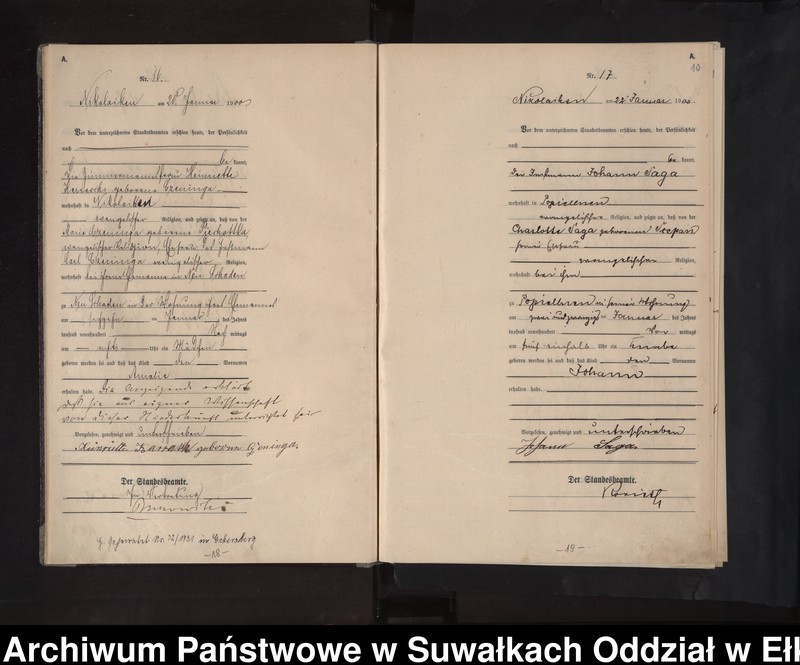 A.
Nr. 16.
Nikolaiken am 20. Januar 1900
Vor dem unterzeichneten Standesbeamten erschien heute, der Persönlichkeit
nach
be kannt,
die Henriette
geborene Czeninga
wohnhaft in Nikolaiken
evangelischer Religion, und zeigte an, daß von der
Marie Czeninga geborene
evangelischer Religion, Ehefrau des Instmann
Karl Czeninga evangelischer Religion,
wohnhaft bei ihrem Ehemanne in Neu Schaden
zu Neu Schaden in der Wohnung ihres Ehemannes
am Januar des Jahres
tausend neunhundert Nach mittags
um Uhr ein Mädchen
geboren worden sei und daß das Kind den Vornamen
Amalie
erhalten habe. Die Anzeigende erklärte
daß sie aus eigner Wissenschaft
von dieser Niederkunft unterrichtet sei
Vorgelesen, genehmigt und unterschrieben
Heinriette geborene Czeninga.
Der Standesbeamte.
In Vertretung
G. geheiratet Nr. 22/1931 in Eckersberg
—18—
A.
10
Nr. 17
Nikolaiken am 22. Januar 1900.
Vor dem unterzeichneten Standesbeamten erschien heute, der Persönlichkeit
nach
be kannt,
der Instmann Johann Saga
wohnhaft in Popiellnen
evangelischer Religion, und zeigte an, daß von der
Charlotte Saga geborenen
seiner Ehefrau
evangelischer Religion,
wohnhaft bei ihm
zu Popiellnen in seiner Wohnung
am zwei und zwanzigsten Januar des Jahres
tausend neunhundert Vor mittags
um Uhr ein Knabe
geboren worden sei und daß das Kind den Vornamen
Johann
erhalten habe.
Vorgelesen, genehmigt und unterschrieben
Johann Saga.
Der Standesbeamte.
—19—
Archiwum Państwowe w Suwałkach Oddział w Eł